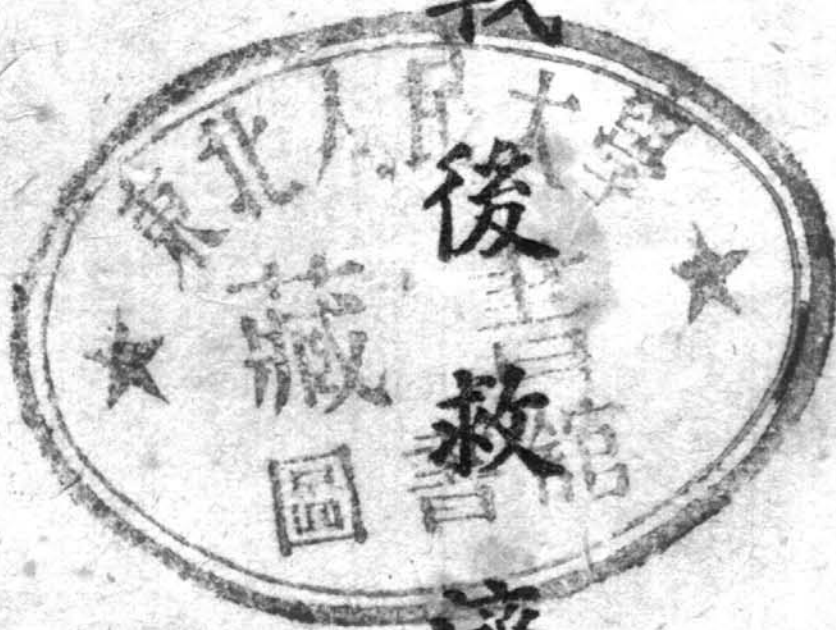 東北人民大學
藏書
圖書館
後救